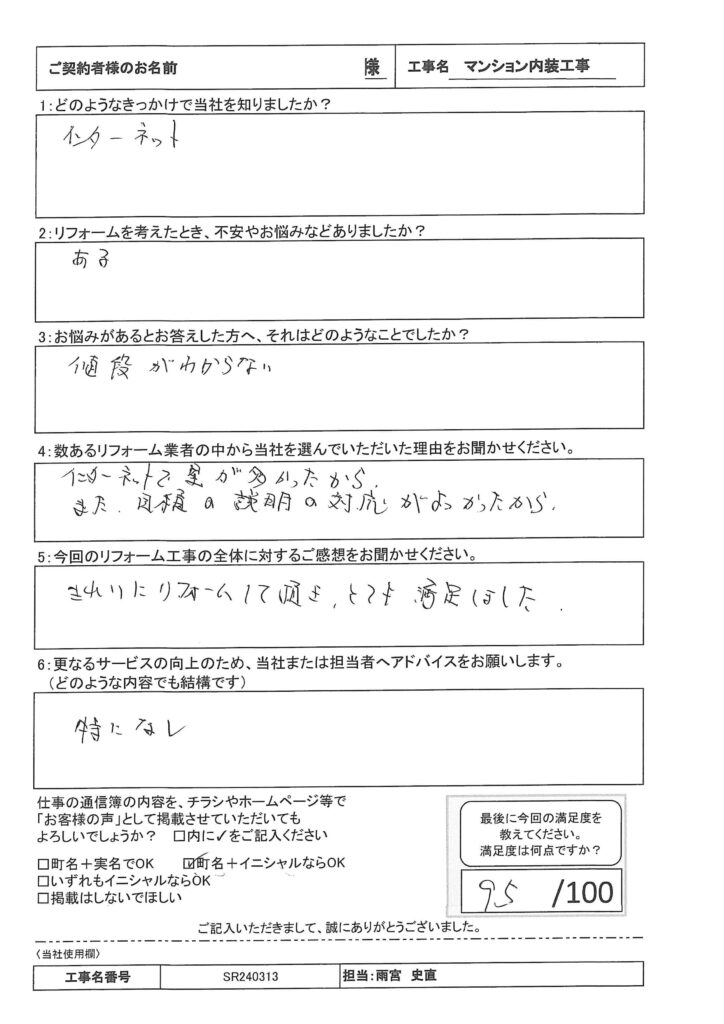 ご契約者様のお名前 様 工事名 マンション内装工事
1:どのようなきっかけで当社を知りましたか?
インターネット
2:リフォームを考えたとき、不安やお悩みなどありましたか?
ある
3:お悩みがあるとお答えした方へ、それはどのようなことでしたか?
値段がわからない
4:数あるリフォーム業者の中から当社を選んでいただいた理由をお聞かせください。
インターネットで星が多かったから。
また、見積の説明の対応がよかったから。
5:今回のリフォーム工事の全体に対するご感想をお聞かせください。
きれいにリフォームして頂き、とても満足しました。
6:更なるサービスの向上のため、当社または担当者へアドバイスをお願いします。
(どのような内容でも結構です)
特になし
仕事の通信簿の内容を、チラシやホームページ等で
「お客様の声」として掲載させていただいても
よろしいでしょうか? □内に✓をご記入ください
□町名+実名でOK ☑町名+イニシャルならOK
□いずれもイニシャルならOK
□掲載はしないでほしい
最後に今回の満足度を
教えてください。
満足度は何点ですか?
95 /100
ご記入いただきまして、誠にありがとうございました。
〈当社使用欄〉
工事名番号 SR240313 担当:雨宮 史直